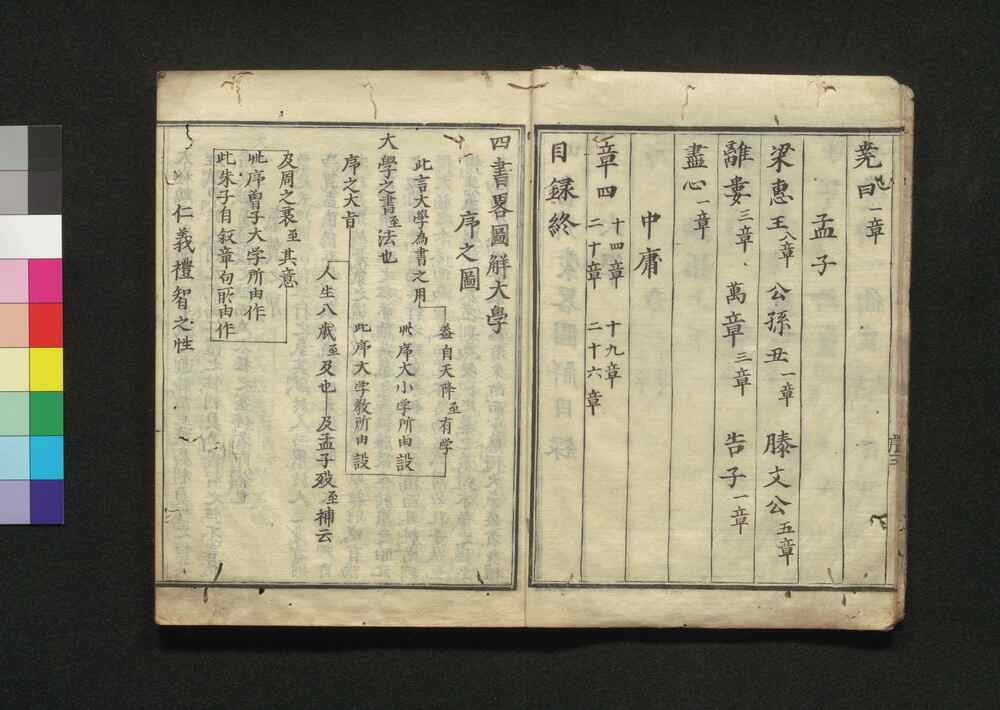 堯曰一章
孟子
梁惠王八章 公孫丑一章 滕文公五章
離婁三章 萬章三章 告子一章
盡心一章
中庸
章四 十四章 十九章
二十章 二十六章
目録終
四書畧圖解大学
序之圖
盖自天降至有学
此言大学為書之用
此序大小学所由設
大學之書至法也
此序大学教所由設
序之大旨
人生八歲至及也
及孟子歿至補云
及周之衰至其意
此序曽子大学所由作
此朱子自叙章句所由作
仁義禮智之性